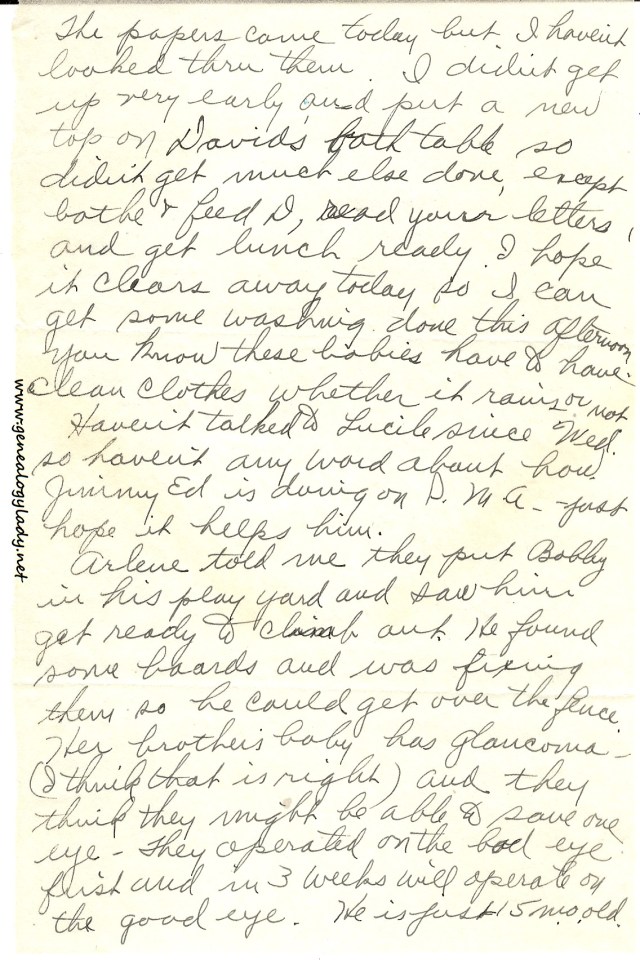 The papers came today but I haven't
looked thru them. I didn't get
up very early and put a new
top on David's bath table so
didn't get much else done, except
bathe & feed D, read your letters,
and get lunch ready. I hope
it clears away today so I can
get some washing done this afternoon.
You know these babies have to have
clean clothes whether it rains or not.
Haven't talked to Lucile since Wed.
so haven't any word about how
Jimmy Ed is doing on P. M A - just
hope it helps him.
Arlene told me they put Bobby
in his play yard and saw him
get ready to climb out. He found
some boards and was fixing
them so he could get over the fence.
Her brother's baby has glaucoma -
(I think that is right) and they
think they might be able to save one
eye - They operated on the bad eye
first and in 3 weeks will operate on
the good eye. He is just 15 mo. old.
www.genealogylady.net